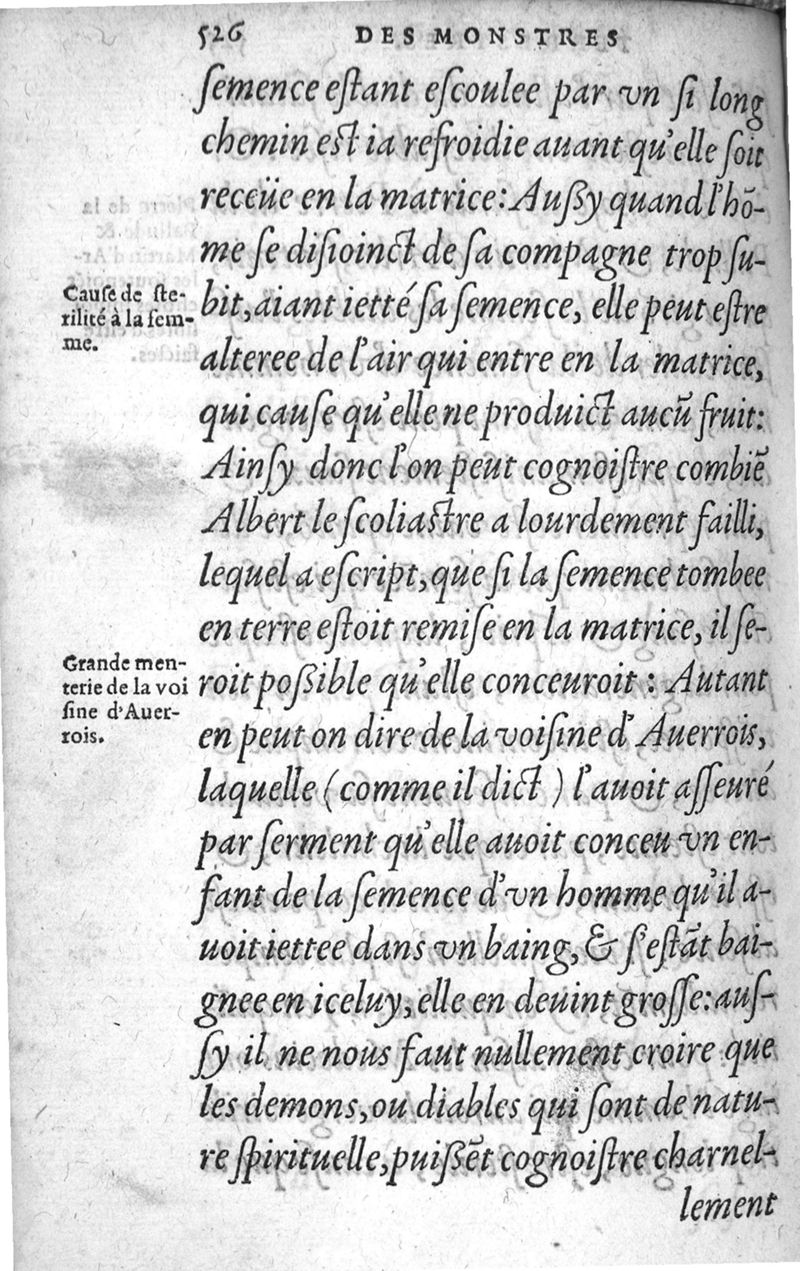 526 DES MONSTRES
ſemence eſtant eſcoulee par vn ſi long
chemin eſt ia refroidie auant qu'elle ſoit
receüe en la matrice: Auſſy quand l'hō-
me ſe diſioinct de ſa compagne trop ſu-
bit, aiant ietté ſa ſemence, elle peut eſtre
alteree de l'air qui entre en la matrice,
qui cauſe qu'elle ne produict aucū fruit:
Ainſy donc l'on peut cognoiſtre combiē
Albert le ſcoliaſtre a lourdement failli,
lequel a eſcript, que ſi la ſemence tombee
en terre eſtoit remiſe en la matrice, il ſe-
roit poſſible qu'elle conceuroit : Autant
en peut on dire de la voiſine d'Auerrois,
laquelle (comme il dict ) l'auoit aſſeuré
par ſerment qu'elle auoit conceu vn en-
fant de la ſemence d'vn homme qu'il a-
uoit iettee dans vn baing, & s'eſtāt bai-
gnee en iceluy, elle en deuint groſſe: auſ-
ſy il ne nous faut nullement croire que
les demons, ou diables qui ſont de natu-
re ſpirituelle, puiſſēt cognoiſtre charnel-
lement
Cauſe de ſte-
rilité à la fem-
me.
Grande men-
terie de la voi
ſine d'Auer-
rois.